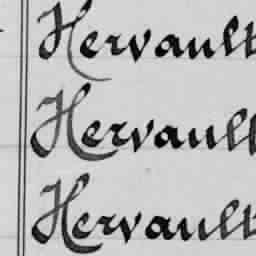 Hervault
Hervault
Hervault